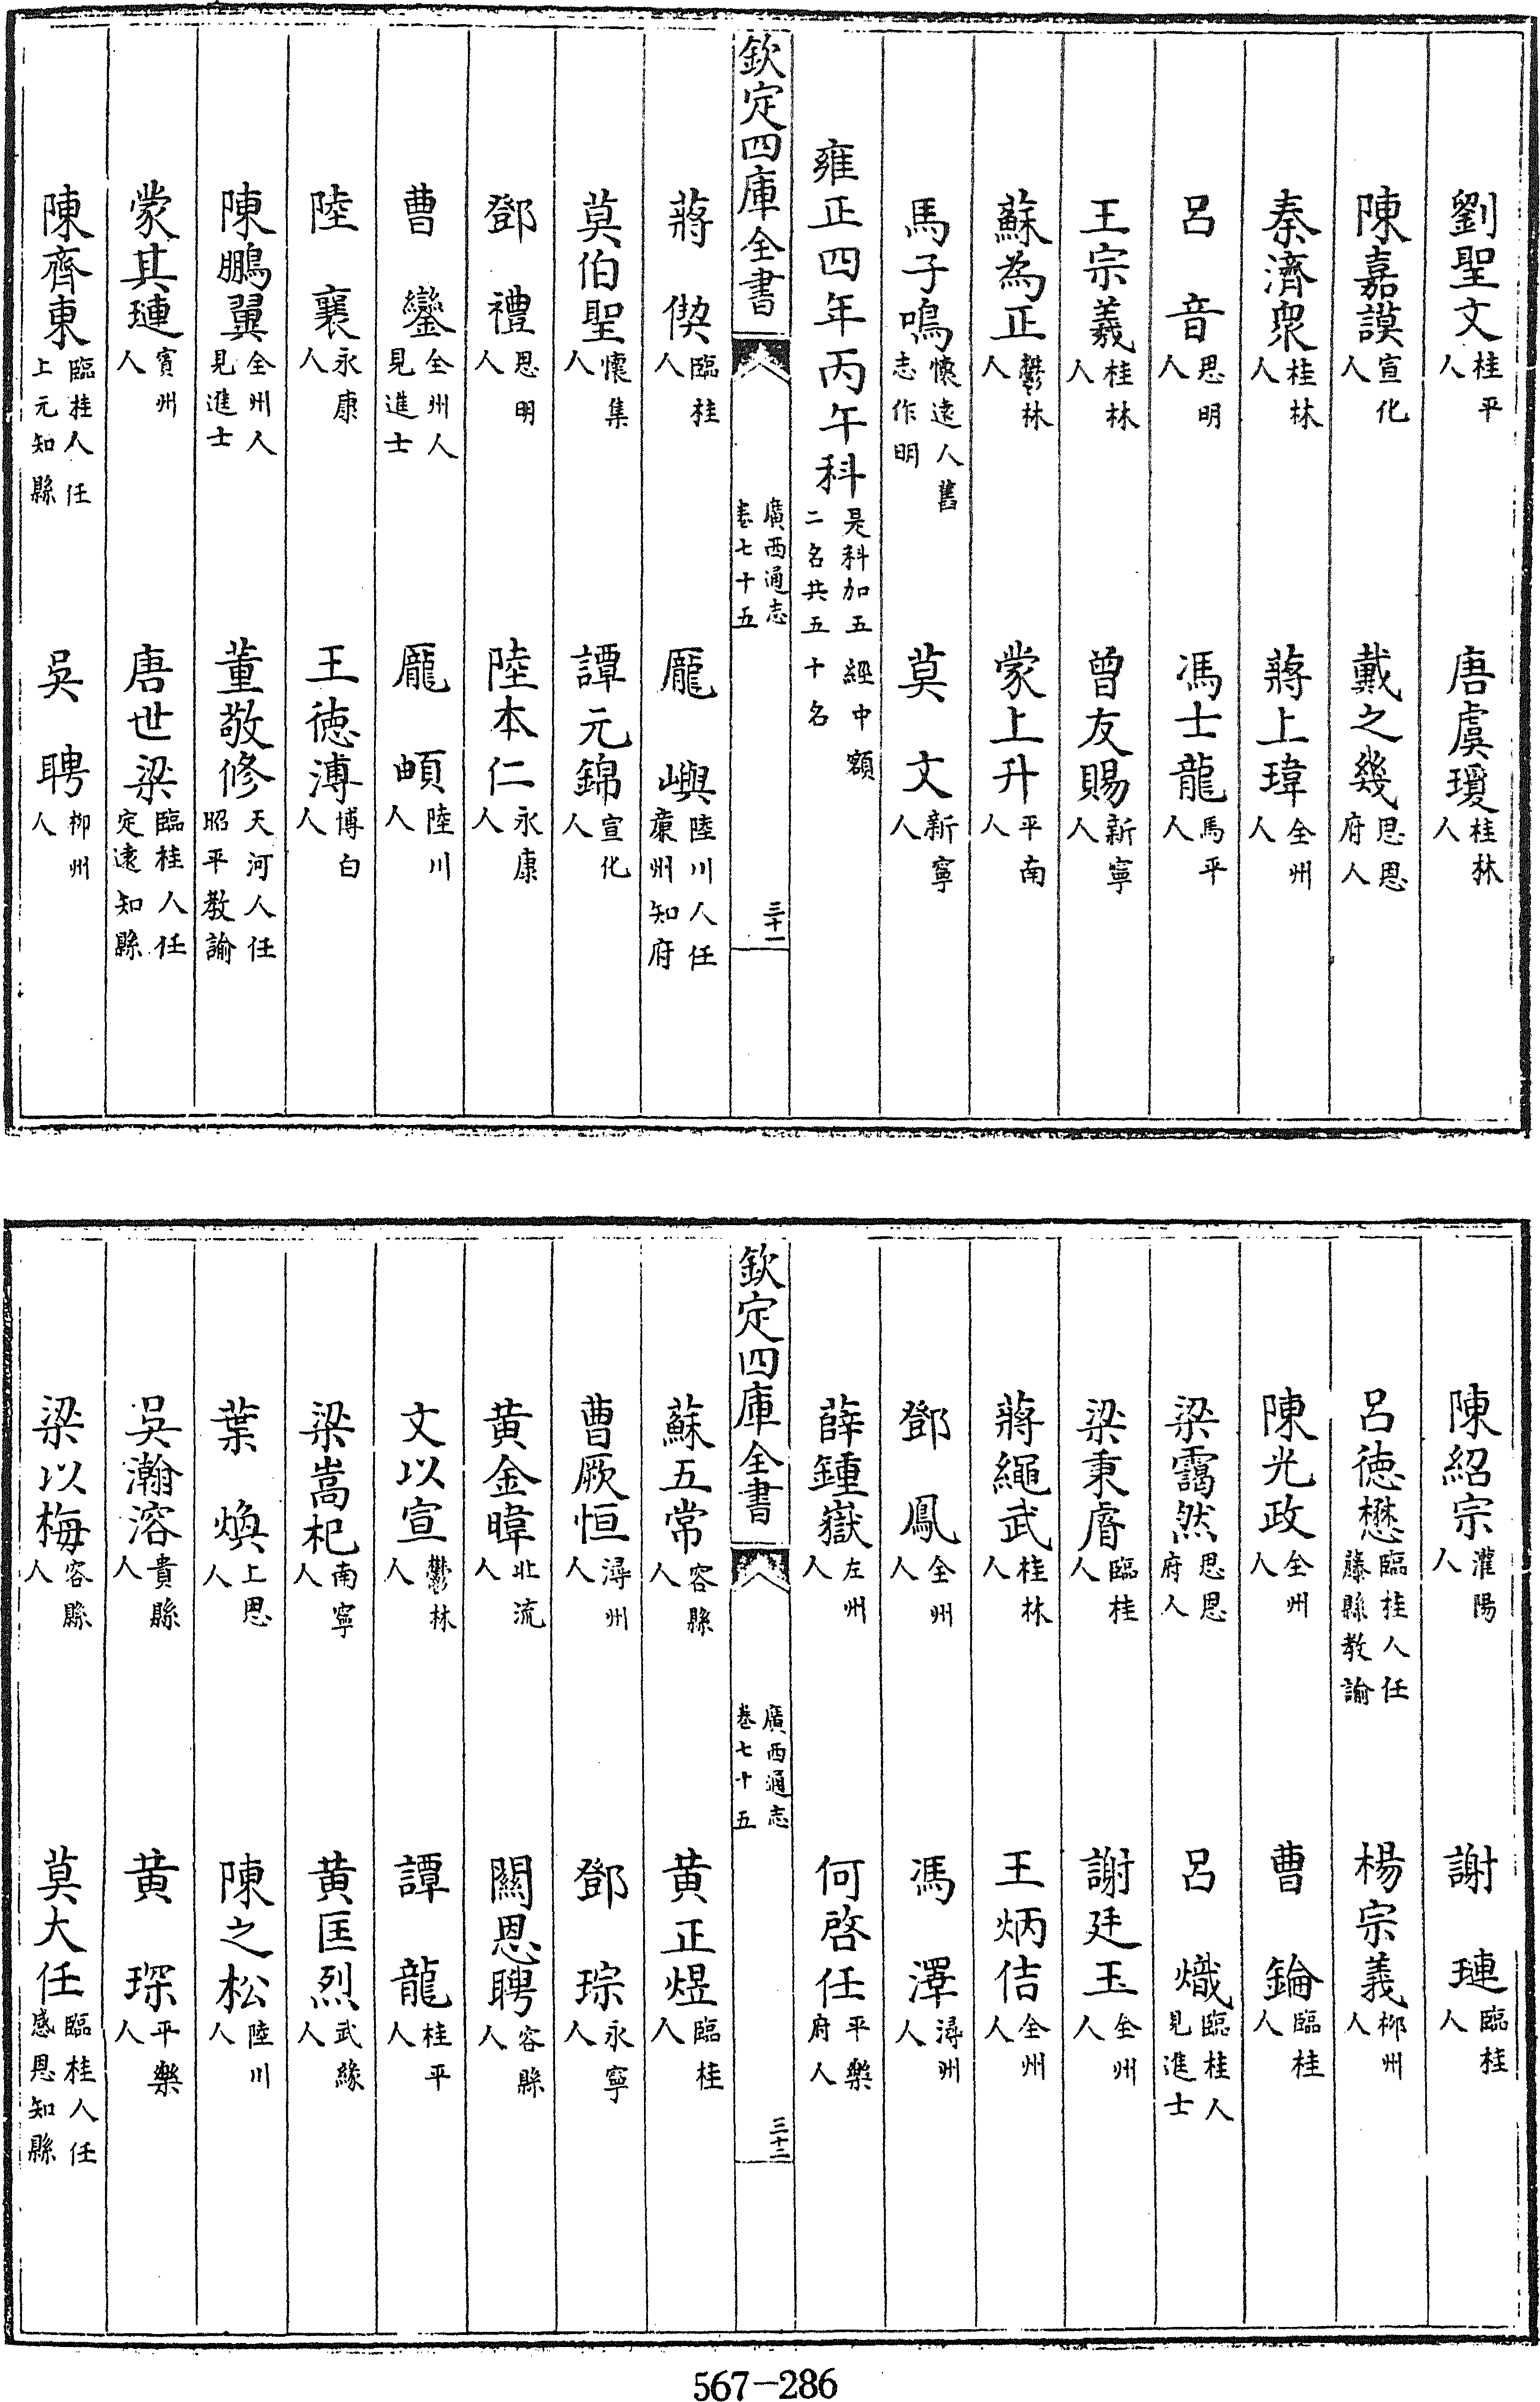 劉聖文桂平人 唐虞瓊桂林人
陳嘉謨宣化人 戴之幾思恩府人
秦濟眾桂林人 蔣上瑋全州人
呂音思明人 馮士龍馬平人
王宗羲桂林人 曾友賜新寧人
蘇為正鬱林人 蒙上升平南人
馬子鳴懷遠人舊志作明 莫文新寧人
雍正四年丙午科是科加五經中額二名共五十名
欽定四庫全書 廣西通志卷七十五 三十一
蔣偰臨桂人 龎嶼陸川人任廉州知府
莫伯聖懷集人 譚元錦宣化人
鄧禮思明人 陸本仁永康人
曹鑾全州人見進士 龎頔陸川人
陸襄永康人 王徳溥博白人
陳鵬翼全州人見進士 董敬修天河人任昭平教諭
蒙其璉賓州人 唐世梁臨桂人任定逺知縣
陳齊東臨桂人任上元知縣 吳聘柳州人
陳紹宗灌陽人 謝璉臨桂人
呂徳懋臨桂人任藤縣教諭 楊宗義柳州人
陳光政全州人 曹錀臨桂人
梁靄然思恩府人 呂熾臨桂人見進士
梁秉睿臨桂人 謝廷玉全州人
蔣繩武桂林人 王炳佶全州人
鄧鳳全州人 馮澤潯州人
薛鍾嶽左州人 何啓任平樂府人
欽定四庫全書 廣西通志卷七十五 三十二
蘇五常容縣人 黄正煜臨桂人
曹厥恒潯州人 鄧琮永寧人
黄金暐北流人 關恩聘容縣人
文以宣鬱林人 譚龍桂平人
梁嵩杞南寧人 黄匡烈武緣人
葉煥上思人 陳之松陸川人
吳瀚溶貴縣人 黄琛平樂人
梁以梅容縣人 莫大任臨桂人任感恩知縣
567-286